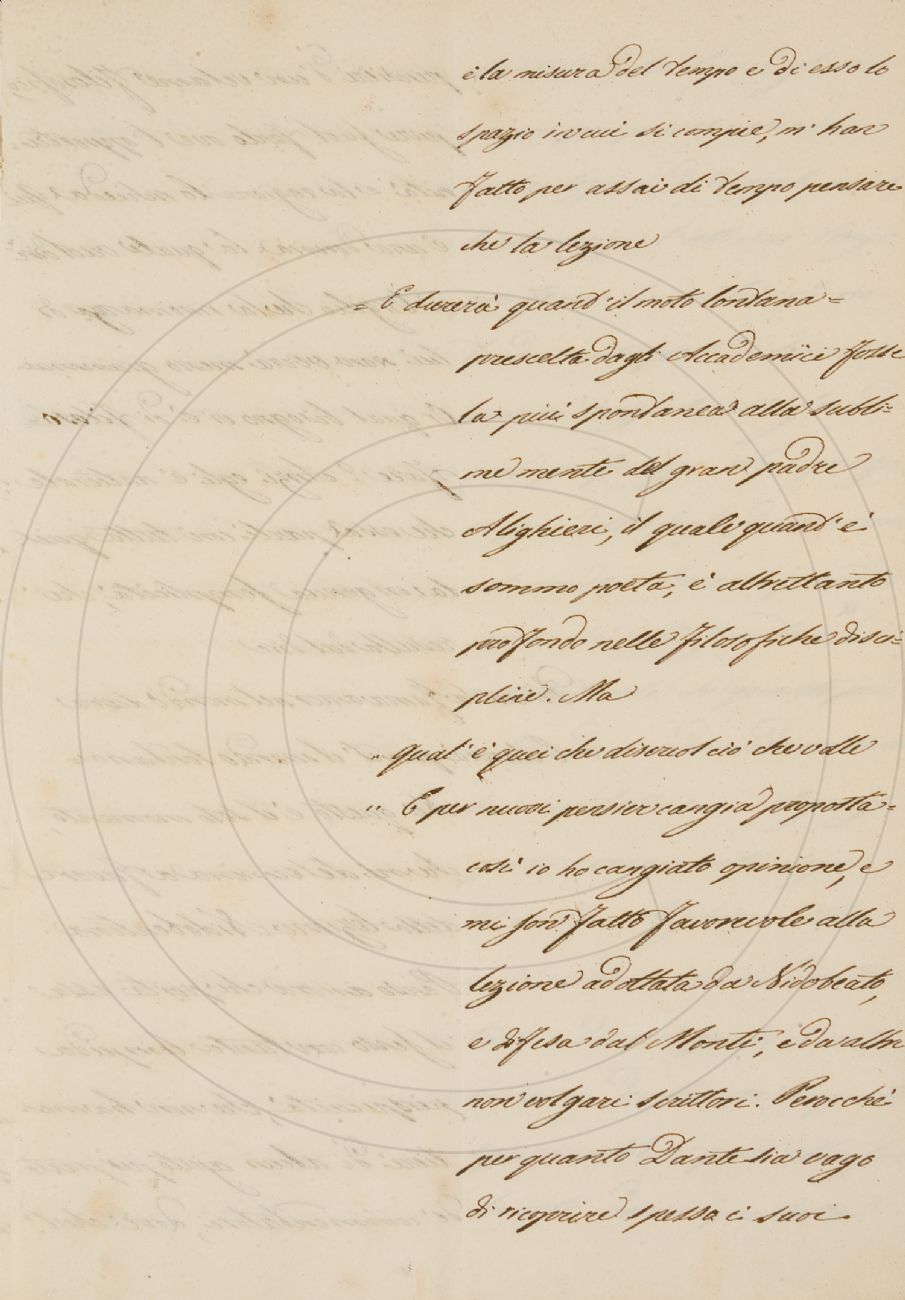 è la misura del tempo e di esso lo
spazio in cui si compie, m' han
fatto per assai di tempo pensare
che la lezione
= E durerà quand' il moto lontana =
prescelta dagli Accademici fosse
la più spontanea alla subli=
me mente del gran padre
Alighieri, il quale quand' è
sommo poeta, è altrettanto
profondo nelle filosofiche disci=
pline. Ma
" qual' è quei che disvuol ciò che volle
" E per nuovi pensier cangia proposta =
così io ho cangiato opinione, e
mi son fatto favorevole alla
lezione adottata da Nidobeato,
e difesa dal Monti, e da altri
non volgari scrittori. Perocchè
per quanto Dante sia vago
di ricoprire spesso i suoi